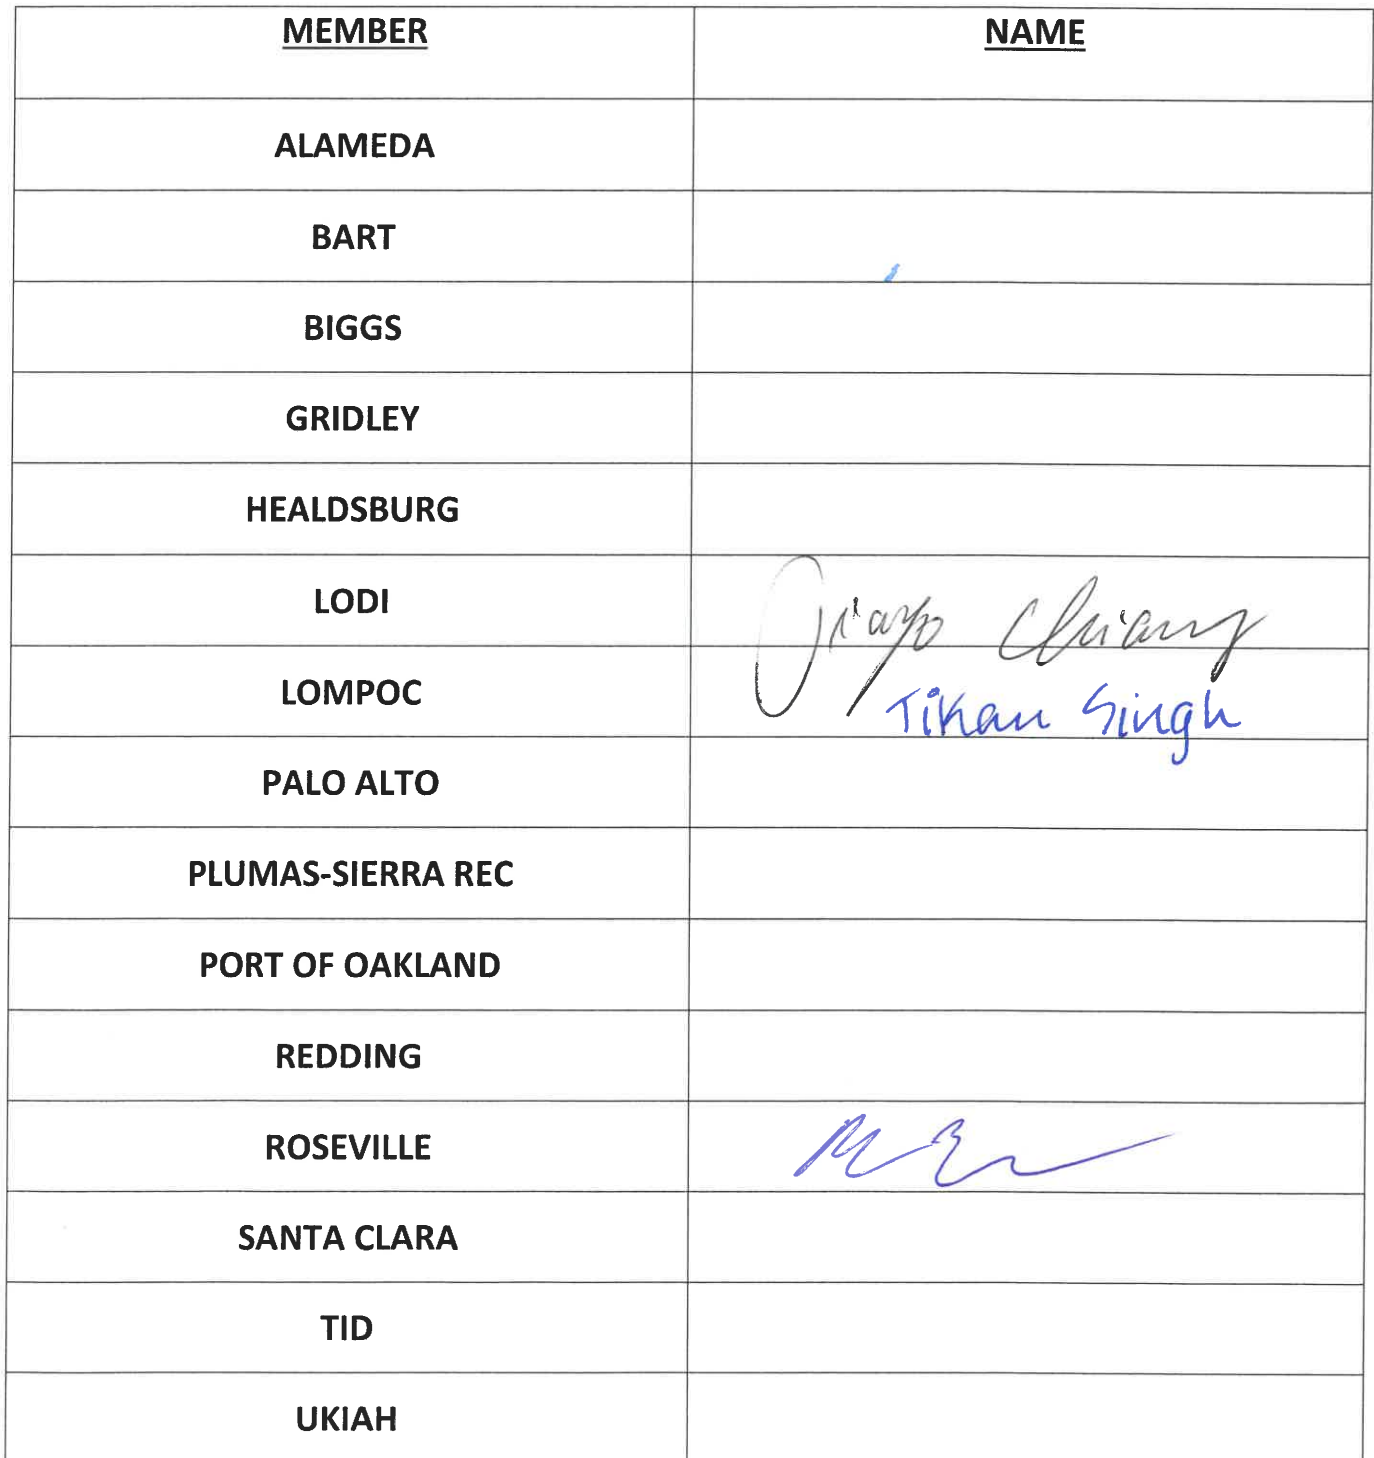 MEMBER NAME
ALAMEDA
BART
BIGGS
GRIDLEY
HEALDSBURG
LODI Jiayo Chiang
LOMPOC Tikan Singh
PALO ALTO
PLUMAS-SIERRA REC
PORT OF OAKLAND
REDDING
ROSEVILLE
SANTA CLARA
TID
UKIAH